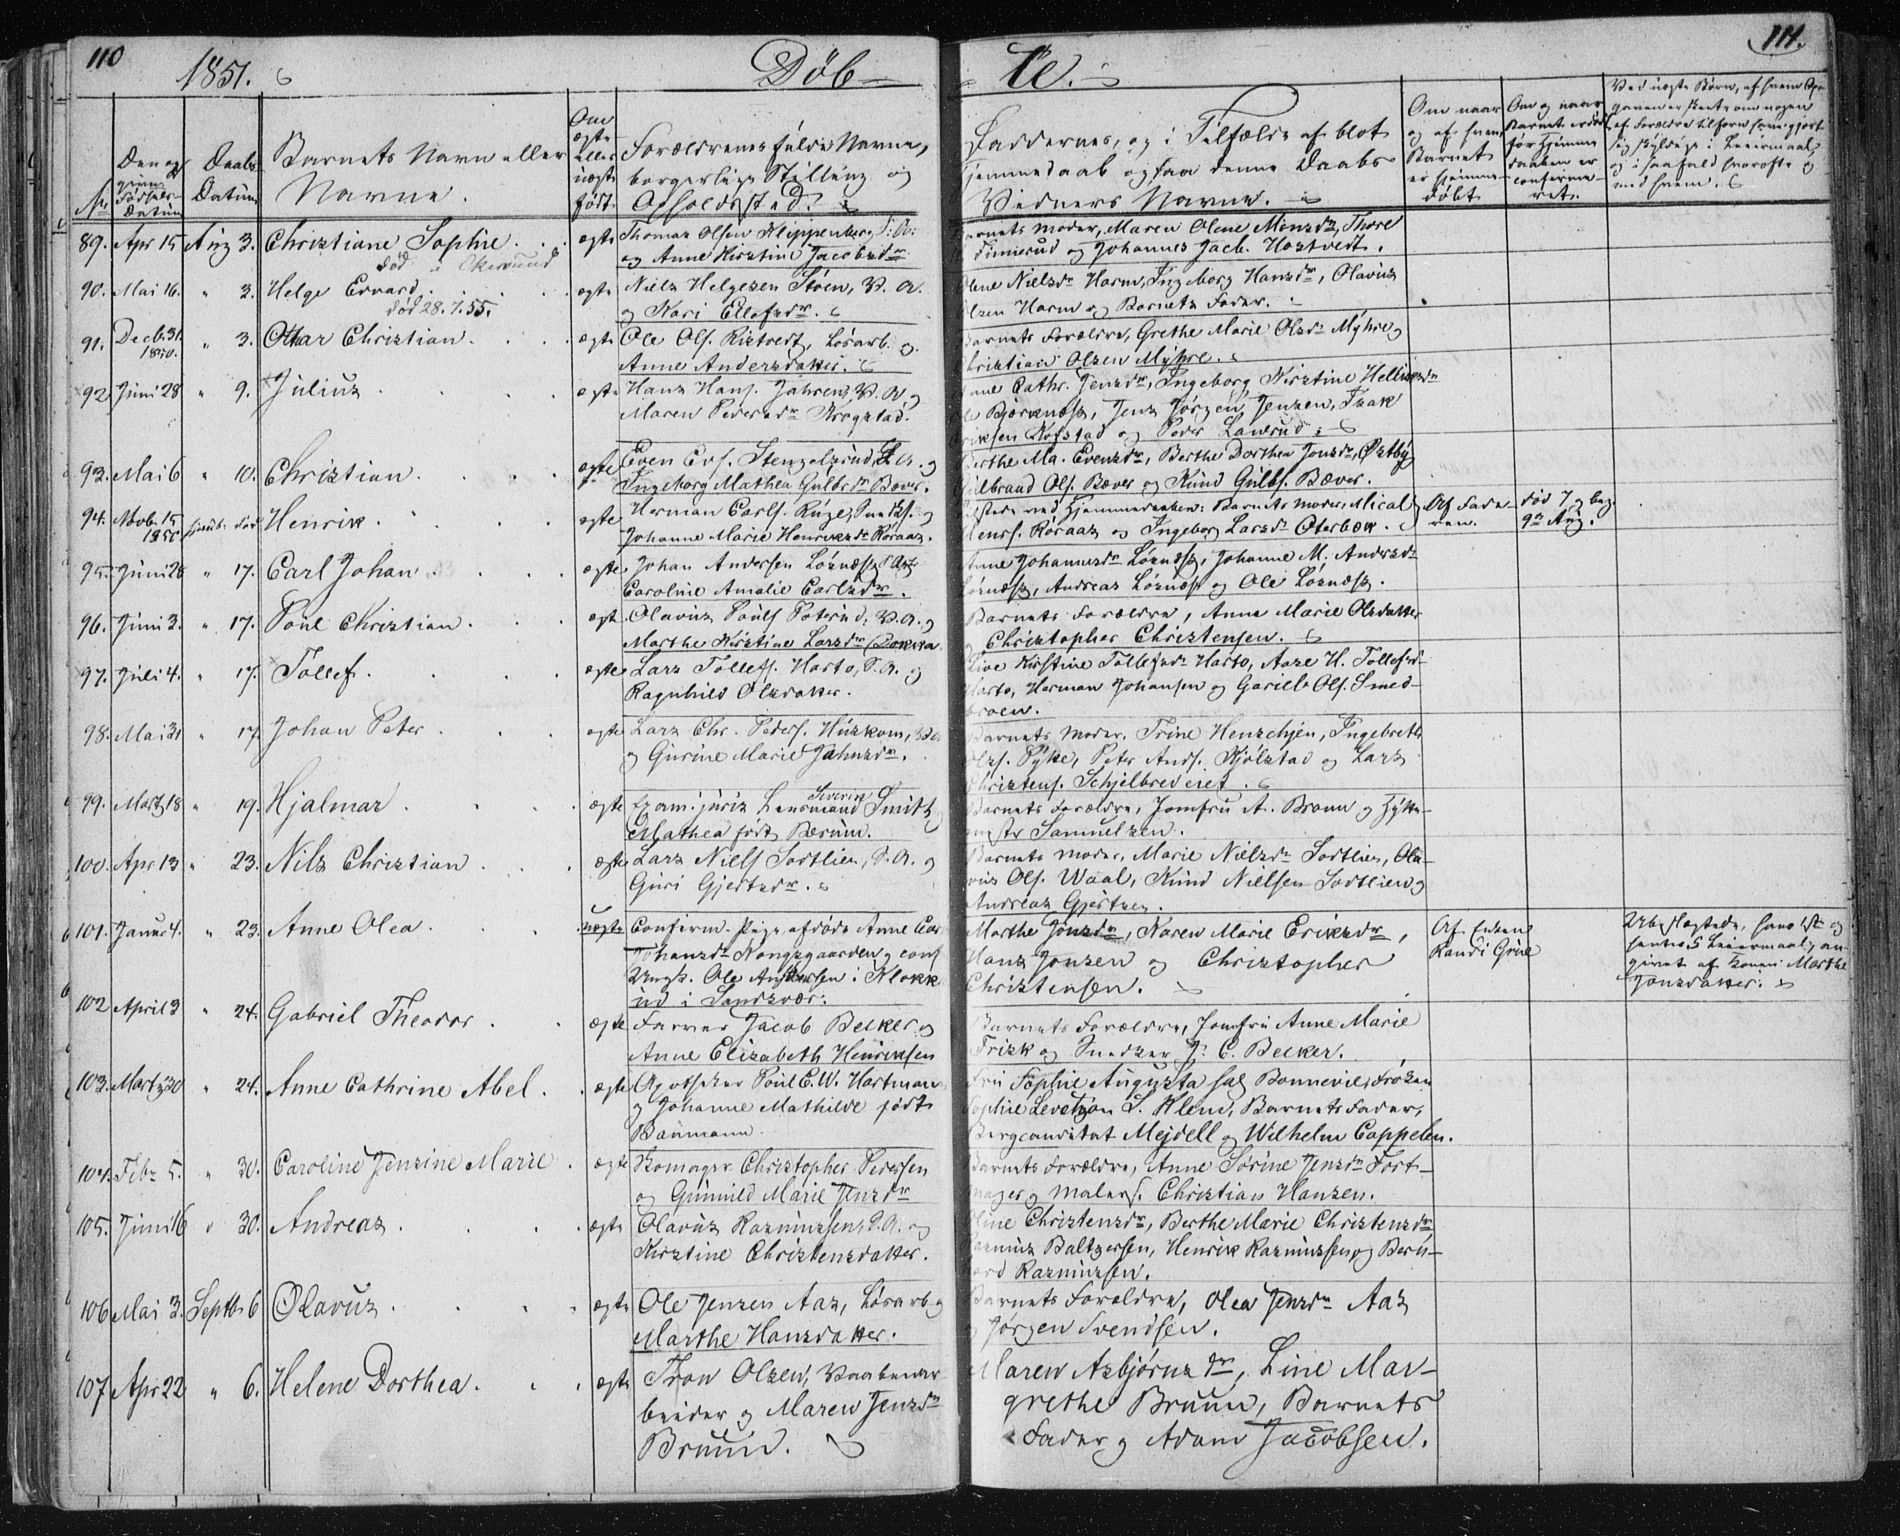 110
1851.
Døb-
te.
111.
No
Den og
Fødsels-
Datum
Daabs
Datum
Barnets Navn eller
Navne.
Om
ægte
eller
uægte
født.
Forældrenes fulde Navne,
borgerlige Stilling og
Opholdssted.
Faddernes, og i Tilfælde af blot
Hjemmedaab ogsaa denne Daabs
Vidners Navne.
Om naar
og af hvem
Barnet
er hjemme-
døbt
Om og naar
Barnet er død
før Hjemme
daaben er
confirme-
ret.
Ved uægte Børn, af hvem Op-
gaven er skeet om nogen
af Forældre tilforn have gjort
sig skyldige i Leiermaal,
og i saafald hvorofte og
med hvem.
89. Apr 15 Aug 3. Christiane Sophie. ægte Thomas Olsen Klippenberg, B. A.
død i Økersund
og Anne Kirstine Jacobsdr
Barnets Moder, Maren Olene Monsdr, Thore
Finnerud og Johannes Jacb. Hostvedt.
90. Mai 16. " 3. Helge Edvard. ægte Niels Helgesen Støen, B. A.
død 28.7.55.
og Kari Ellefsdr.
Olene Nielsdr Harm, Ingeborg Hansdr, Olavus
Olsen Harm og Barnets Fader.
91. Decb. 31 1850. " 3. Othar Christian. ægte Ole Ols. Kistvedt, Løsarb. og
Anne Andersdatter.
Barnets Forældre, Grethe Marie Olsdr Myhre og
Christian Olsen Myhre.
92 Juni 28 " 9. Julius ægte Hans Hans. Jahren, B. A og
Maren Pedersdr Krogstad.
Anne Cathr. Jensdr, Ingeborg Kirstine Hellixsdr
Ole Bjørknæs, Jens Jørgen Jensen, Isak
Eriksen Kofstad og Peder Landrud.
93. Mai 6 " 10. Christian. ægte Even Evs. Stengelsrud, B. A. og
Ingeborg Mathea Gulbrdr Bæver.
Berthe Ma. Evensdr, Berthe Dorthea Jonsdr Østby
Gulbrand Ols. Bæver og Knud Gulbs. Bæver.
94. Novb. 15 1850 hjemdb. død Henrik. ægte Herman Carls. Ruge, og
Johanne Marie Henriksdr Kóraas.
tilstede ved Hjemmedaaben: Barnets Moder, Mical
Henrs. Koraas og Ingeborg Larsdr Oterbek.
Af Fade
ren.
død 7 og beg.
9de Aug.
95. Juni 28 " 17. Carl Johan ægte Johan Andersen Løsnæs, B. A. og
Caroline Amalie Carlsdr.
Anne Johannesdr Løsnæs, Johanne M. Andersdr
Løsnæs, Andreas Løsnæs og Ole Løsnæs.
96. Juni 3. " 17. Poul Christian. ægt. Olavus Pouls Poterud, B. A. og
Marthe Kirstine Larsdr (Dokka
Barnets Forældre, Anne Marie Olsdatter
og Christopher Christensen.
97. Juli 4. " 17. Tollef. ægte Lars Tollefs. Harto, B. A. og
Ragnhild Olsdatter.
Live Kirstine Tollefsdr Harto, Aase H. Tollefsd-
Harto, Herman Johansen og Gabriel Ols. Smed-
broen.
98. Mai 31 " 17. Johan Peter ægte Lars Chr. Peders. Huskom, B. A
og Gurine Marie Jahnsdr.
Barnets Moder, Trine Henschjen, Ingebreth
Ols. Pyke, Peter Ands. Kjølstad og Lars
Christens. Schjelbredeiet.
99. Marts 18 " 19. Hjalmar ægte Exam. juris Lensmand Severin Smith og
Mathea født Bærum.
Barnets Forældre, Jomfru A. Bronn og Hytte-
mester Samuelsen.
100. Apr 13 " 23. Nils Christian ægte Lars Niels Sodtlien, B. A. og
Guri Gjertsdr.
Barnets Moder, Marie Nielsdr Sodtlien, Ola-
vus Ols. Waal, Knud Nielsen Sodtlien og
Andreas Gjertsen.
101. Januar 4. " 23. Anne Olea. uægte Confirm. Pige afdøde Anne Cor
Johansdr Nangsgaarden og conf
Ungk. Ole Andersen i Klokk
ud i Sandsvær.
Marthe Jonsdr, Karen Marie Eriksdr,
Hans Jonsen og Christopher
Christensen.
Af Enken
Randi Grue
Ubeslægtede, hans 1ste og
hendes Leiermaal, an
givet af Konen Marthe
Jonsdatter.
102 April 3 " 24. Gabriel Theodor. ægte Farver Jacob Becker og
Anne Elisabeth Henriksen
Barnets Forældre, Jomfru Anne Marie
Frisk og Snedker J. C. Becker.
103. Marts 30 " 24. Anne Cathrine Abel. ægte Apotheker Poul C. W. Hartman
og Johanne Mathilde født
Baumann.
Fru Sophie Augusta sal Bonnevie, Frøken
Sophie Levetzon L. Klem, Barnets Fader,
Bergcandidat Mejdell og Wilhelm Cappelen.
104. Febr 5. " 30. Caroline Jensine Marie ægte Skomager Christopher Pedersen
og Gunnild Marie Jensdr
Barnets Forældre, Anne Sørine Jensdr Fort-
mager og Maler s. Christian Hansen.
105. Juni 16 " 30. Andreas ægte Olavus Rasmussen, B. A. og
Kirstine Christensdatter.
Oline Christensdr, Berthe Marie Christensdr
Rasmus Baltzersen, Henrik Rasmussen og Bern-
hard Rasmussen.
106 Mai 3. Septb 6 Olavus ægte Ole Jensen Aas, Løsarb og
Marthe Hansdatter.
Barnets Forældre, Olea Jensdr Aas
og Jørgen Svendsen.
107 Apr 22 " 6. Helene Dorthea. ægte Tron Olsen, Vaabenar
beider og Maren Jensdr
Bruun.
Maren Asbjørnsdr, Line Mar-
grethe Bruun, Barnets
Fader og Adam Jacobsen.